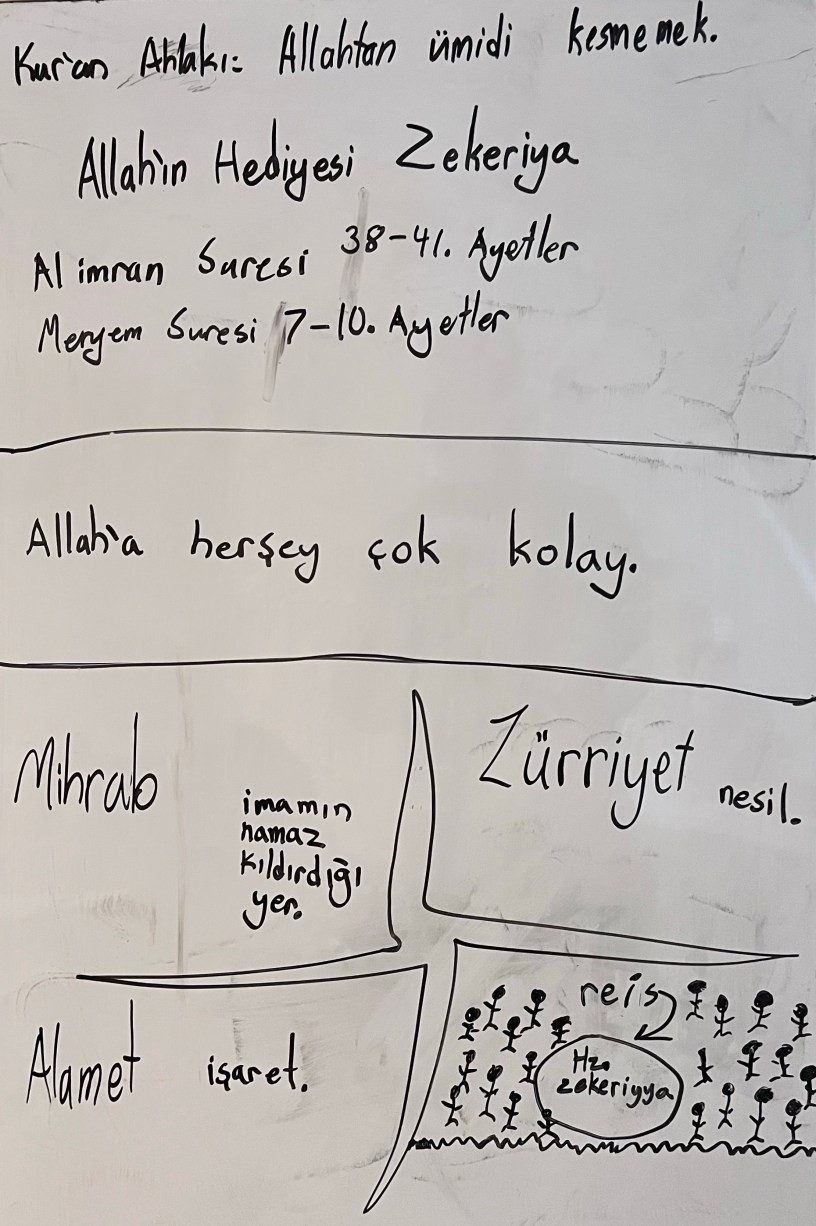 Kur'an Ahlakı: Allahtan ümidi kesmemek.
Allah'ın Hediyesi Zekeriya
Al imran Suresi 38-41. Ayetler
Meryem Suresi 7-10. Ayetler
Allah'a herşey çok kolay.
Mihrab
imamın
namaz
kıldırdığı
yer.
Zürriyet nesil.
Alamet işaret.
reis
Hz.
zekeriyya